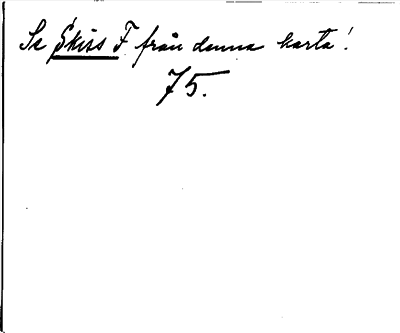 Se Skirs F. från denna karta!
75.